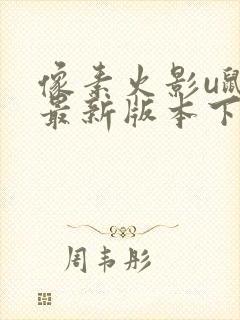 像素火影u鼠
最新版本下
周韦彤